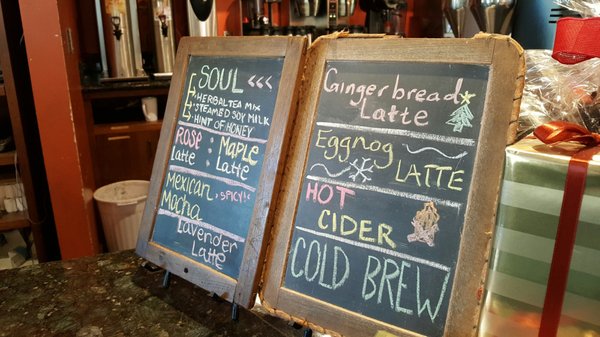 SOUL <<<
HERBAL TEA MIX
STEAMED SOY MILK
HINT OF HONEY
ROSE Latte : MAPLE Latte
Mexican Mocha *SPICY!*
Lavender Latte
Gingerbread Latte
Eggnog LATTE
HOT CIDER
COLD BREW